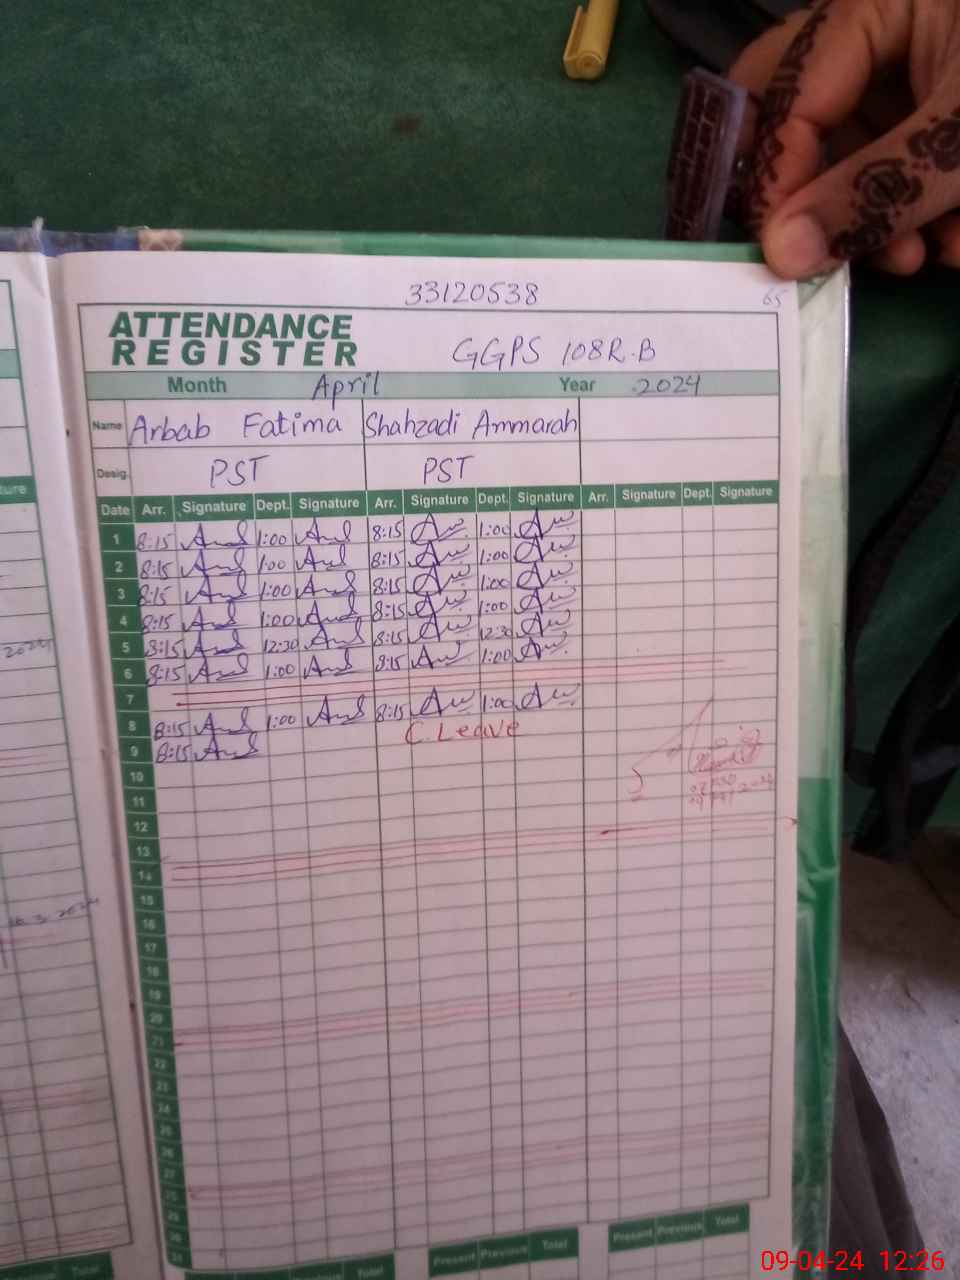 33120538
65
ATTENDANCE
REGISTER
GGPS 108R.B
Month April Year 2024
Name Arbab Fatima Shahzadi Ammarah
Desig. PST PST
Date Arr. Signature Dept. Signature Arr. Signature Dept. Signature Arr. Signature Dept. Signature
1 8:15 1:00 8:15 1:00
2 8:15 1:00 8:15 1:00
3 8:15 1:00 8:15 1:00
4 8:15 1:00 8:15 1:00
5 8:15 12:30 8:15 12:30
6 8:15 1:00 8:15 1:00
7
8 8:15 1:00 8:15 1:00
9 8:15 C. Leave
10
11
12
13
14
15
16
17
18
19
20
21
22
23
24
25
26
27
28
29
30
31
Present Previous Total Present Previous Total
09-04-24 12:26